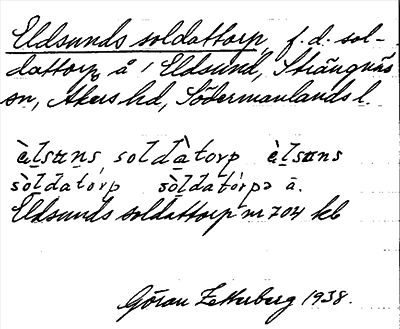 Eldsunds soldattorp, f.d. sol-
dattorp å 1 Eldsund, Strängnäs
sn, Åkers hd, Södermanlands l.
èlsɯns soldàtorp èlsɯns
sòldatórp sòldatórpə ä.
Eldsunds soldattorp nr 704 kb
Göran Zetterberg 1938.